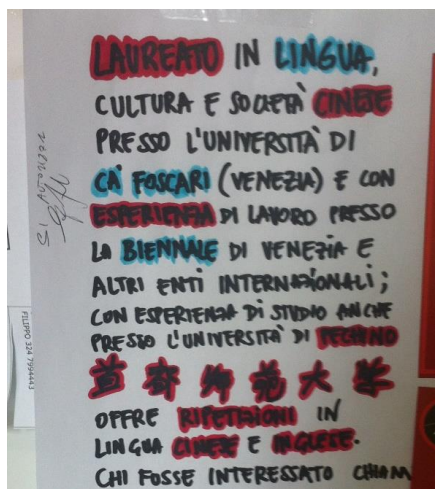 LAUREATO IN LINGUA,
CULTURA E SOCIETÀ CINESE
PRESSO L'UNIVERSITÀ DI
CÀ FOSCARI (VENEZIA) E CON
ESPERIENZA DI LAVORO PRESSO
LA BIENNALE DI VENEZIA E
ALTRI ENTI INTERNAZIONALI;
CON ESPERIENZA DI STUDIO ANCHE
PRESSO L'UNIVERSITÀ DI PECHINO
首都师范大学
OFFRE RIPETIZIONI IN
LINGUA CINESE E INGLESE.
CHI FOSSE INTERESSATO CHIAM
SI AUTORIZZA
FILIPPO 324 7994443